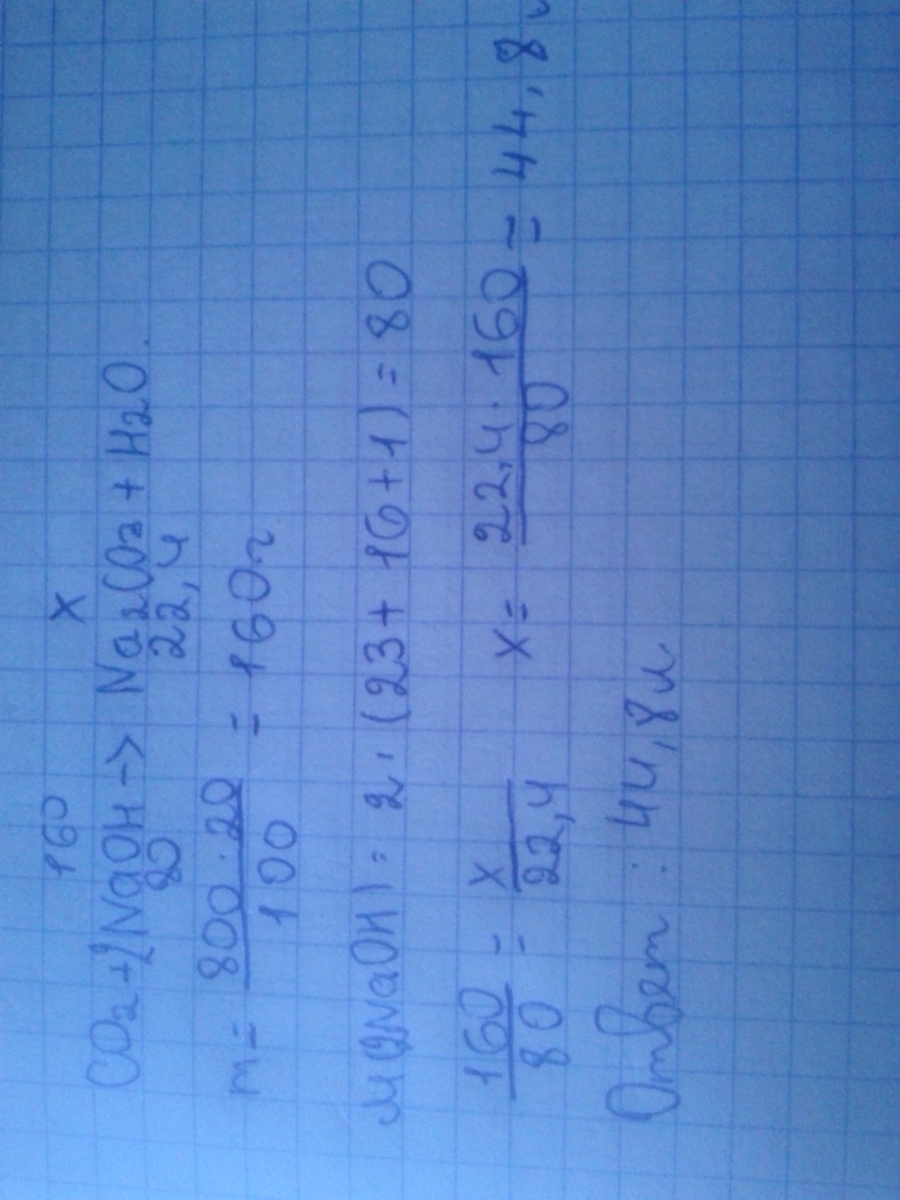 160 x
CO₂ + 2NaOH → Na₂CO₃ + H₂O.
80 22,4
m = 800 · 20 / 100 = 160г
M(2NaOH) = 2 · (23 + 16 + 1) = 80
160 / 80 = x / 22,4 x = 22,4 · 160 / 80 = 44,8
Ответ : 44,8л